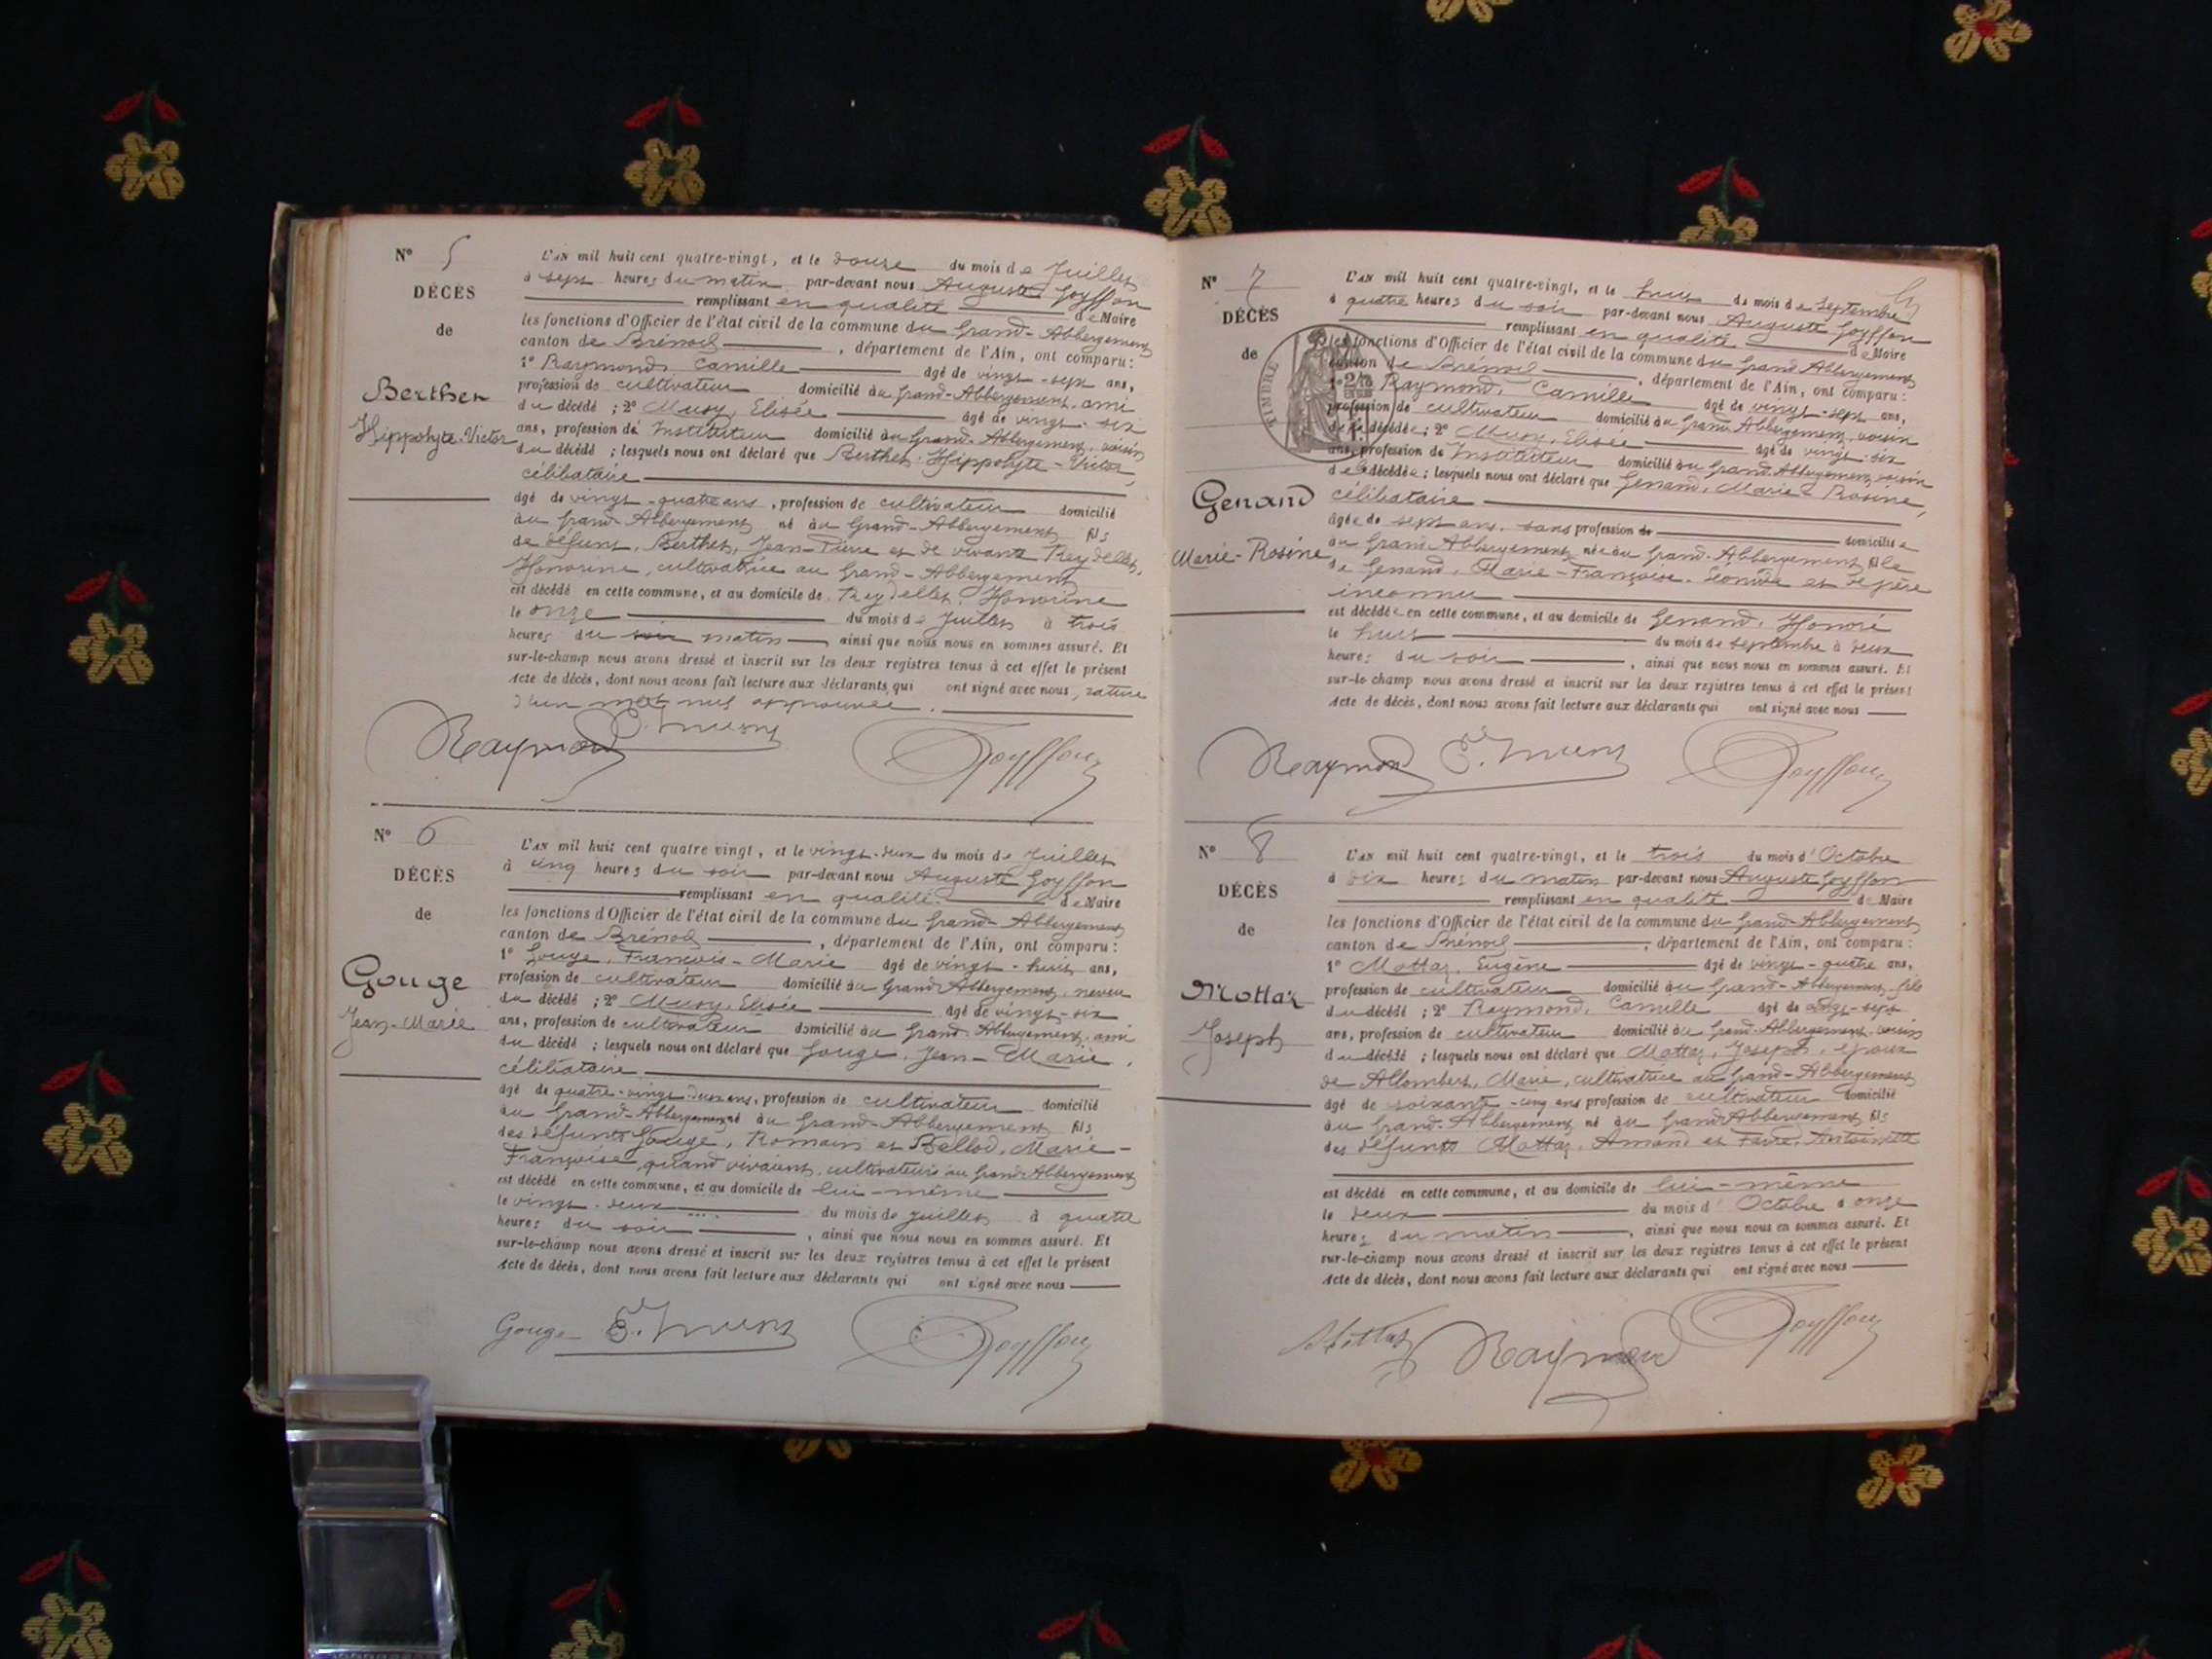 N° 5
DÉCÈS
de
Berthet
Hippolyte-Victor
L'AN mil huit cent quatre-vingt, et le douze du mois de Juillet
à sept heures du matin par-devant nous Auguste Goyffon
remplissant en qualité de Maire
les fonctions d'Officier de l'état civil de la commune du Grand-Abbergement
canton de Brénod, département de l'Ain, ont comparu :
1° Raymond, Camille âgé de vingt-sept ans,
profession de cultivateur domicilié au Grand-Abbergement, ami
du décédé ; 2° Musy, Elisée âgé de vingt-six
ans, profession de Instituteur domicilié au Grand-Abbergement, voisin
du décédé ; lesquels nous ont déclaré que Berthet Hippolyte-Victor,
célibataire
âgé de vingt-quatre ans, profession de cultivateur domicilié
au Grand-Abbergement né au Grand-Abbergement fils
de défunt, Berthet, Jean-Pierre et de vivante Reydellet,
Honorine, cultivatrice au Grand-Abbergement
est décédé en cette commune, et au domicile de Reydellet, Honorine
le onze du mois de Juillet à trois
heures du soir matin, ainsi que nous nous en sommes assuré. Et
sur-le-champ nous avons dressé et inscrit sur les deux registres tenus à cet effet le présent
Acte de décès, dont nous avons fait lecture aux déclarants, qui ont signé avec nous, rature
d'un mot nul approuvée.
Raymond E. Musy Goyffon
N° 6
DÉCÈS
de
Gouge
Jean-Marie
L'AN mil huit cent quatre vingt, et le vingt-deux du mois de Juillet
à cinq heures du soir par-devant nous Auguste Goyffon
remplissant en qualité de Maire
les fonctions d'Officier de l'état civil de la commune du Grand-Abbergement
canton de Brénod, département de l'Ain, ont comparu :
1° Gouge, François-Marie âgé de vingt-huit ans,
profession de cultivateur domicilié au Grand-Abbergement, neveu
du décédé ; 2° Musy, Elisée âgé de vingt-six
ans, profession de cultivateur domicilié au Grand-Abbergement, ami
du décédé ; lesquels nous ont déclaré que Gouge, Jean-Marie,
célibataire
âgé de quatre-vingt-deux ans, profession de cultivateur domicilié
au Grand-Abbergement né au Grand-Abbergement fils
des défunts Gouge, Romain et Bellod, Marie-
Françoise, quand vivaient, cultivateurs au Grand-Abbergement
est décédé en cette commune, et au domicile de lui-même
le vingt-deux du mois de Juillet à quatre
heures du soir, ainsi que nous nous en sommes assuré. Et
sur-le-champ nous avons dressé et inscrit sur les deux registres tenus à cet effet le présent
Acte de décès, dont nous avons fait lecture aux déclarants qui ont signé avec nous
Gouge E. Musy Goyffon
N° 7
DÉCÈS
de
Genand
Marie-Rosine
TIMBRE
L'AN mil huit cent quatre-vingt, et le huit du mois de Septembre
à quatre heures du soir par-devant nous Auguste Goyffon
remplissant en qualité de Maire
les fonctions d'Officier de l'état civil de la commune du Grand Abbergement
canton de Brénod, département de l'Ain, ont comparu :
1° Raymond, Camille âgé de vingt-sept ans,
profession de cultivateur domicilié au Grand Abbergement, voisin
de la décédée ; 2° Musy, Elisée âgé de vingt-six
ans, profession de Instituteur domicilié au Grand Abbergement, voisin
de la décédée ; lesquels nous ont déclaré que Genand, Marie-Rosine,
célibataire
âgée de sept ans, sans profession de domiciliée
au Grand Abbergement née au Grand-Abbergement fille
de Genand, Marie-Françoise-Léonide et de père
inconnu
est décédée en cette commune, et au domicile de Genand, Honoré
le huit du mois de Septembre à deux
heures du soir, ainsi que nous nous en sommes assuré. Et
sur-le champ nous avons dressé et inscrit sur les deux registres tenus à cet effet le présent
Acte de décès, dont nous avons fait lecture aux déclarants qui ont signé avec nous
Raymond E. Musy Goyffon
N° 8
DÉCÈS
de
Mottaz
Joseph
L'AN mil huit cent quatre-vingt, et le trois du mois d'Octobre
à dix heures du matin par-devant nous Auguste Goyffon
remplissant en qualité de Maire
les fonctions d'Officier de l'état civil de la commune du Grand-Abbergement
canton de Brénod, département de l'Ain, ont comparu :
1° Mottaz, Eugène âgé de vingt-quatre ans,
profession de cultivateur domicilié au Grand-Abbergement, fils
du décédé ; 2° Raymond, Camille âgé de vingt-sept
ans, profession de cultivateur domicilié au Grand-Abbergement, voisin
du décédé ; lesquels nous ont déclaré que Mottaz, Joseph, époux
de Allombert, Marie, cultivatrice au Grand-Abbergement
âgé de soixante-cinq ans profession de cultivateur domicilié
au Grand-Abbergement né au Grand Abbergement fils
des défunts Mottaz, Amand et Favre, Antoinette
est décédé en cette commune, et au domicile de lui-même
le deux du mois d'Octobre à onze
heures du matin, ainsi que nous nous en sommes assuré. Et
sur-le-champ nous avons dressé et inscrit sur les deux registres tenus à cet effet le présent
Acte de décès, dont nous avons fait lecture aux déclarants qui ont signé avec nous
Mottaz Raymond Goyffon